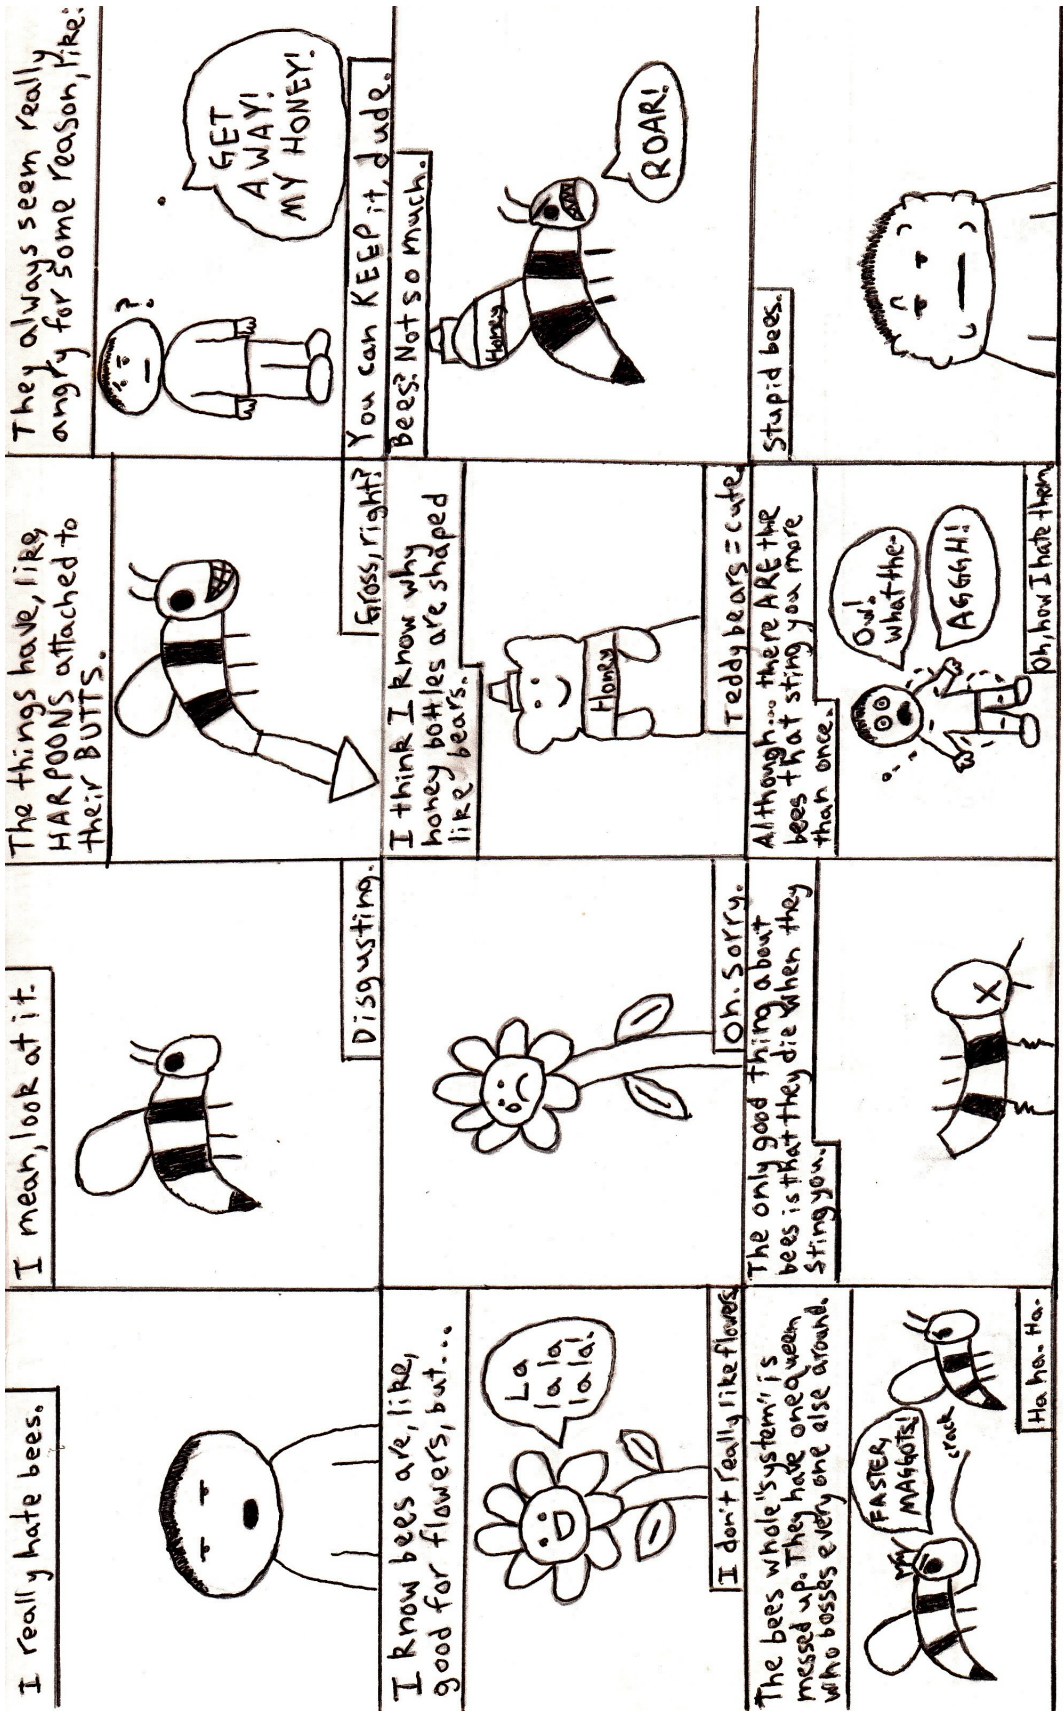 I really hate bees.
I mean, look at it.
Disgusting.
The things have, like,
HARPOONS attached to
their BUTTS.
Gross, right?
They always seem really
angry for some reason, like:
?
GET
AWAY!
MY HONEY!
You can KEEP it, dude.
I know bees are, like,
good for flowers, but...
La
la la,
la la!
I don't really like flowers.
Oh. Sorry.
I think I know why
honey bottles are shaped
like bears.
Honey
Teddy bears = cute.
Bees? Not so much.
Honey
ROAR!
The bees whole "system" is
messed up. They have one queen
who bosses every one else around.
FASTER,
MAGGOTS!
crack
Ha ha. Ha.
The only good thing about
bees is that they die when they
sting you.
Although... there ARE the
bees that sting you more
than once.
Ow!
What the-
AGGGH!
Oh, how I hate them
Stupid bees.